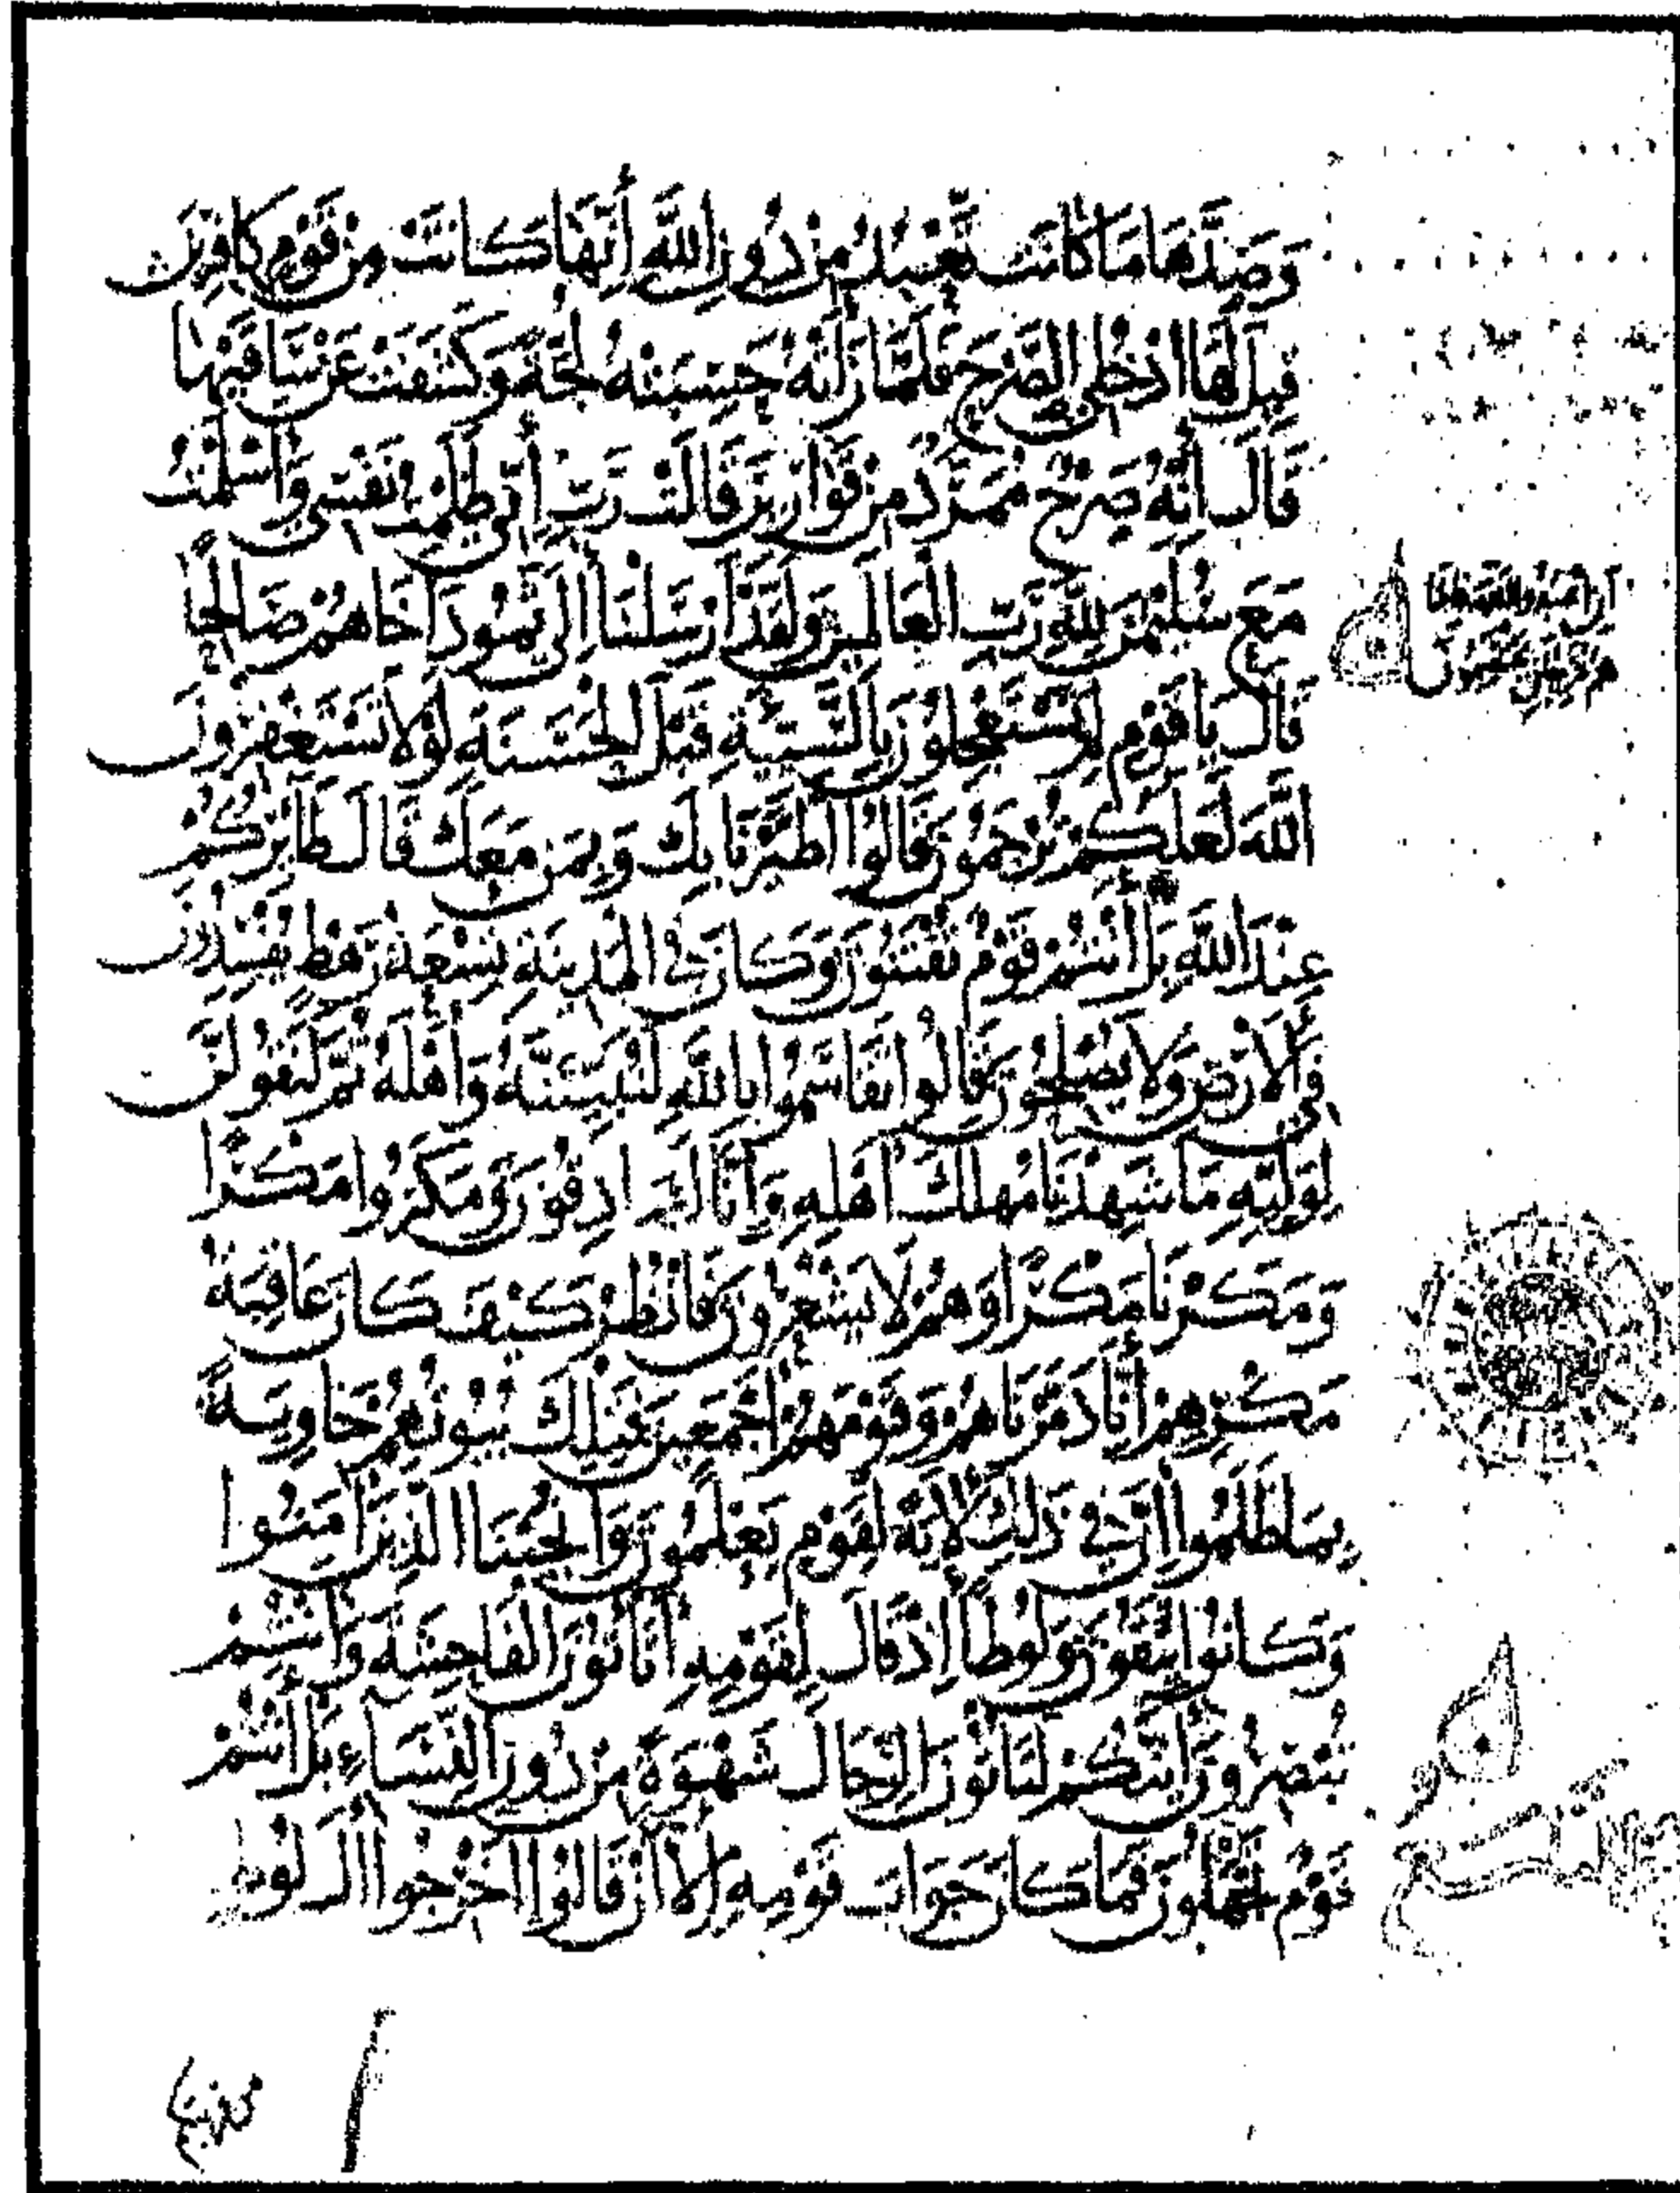 وَصَدَّهَا مَا كَانَت تَّعْبُدُ مِن دُونِ اللَّهِ إِنَّهَا كَانَتْ مِن قَوْمٍ كَافِرِينَ
قِيلَ لَهَا ادْخُلِي الصَّرْحَ فَلَمَّا رَأَتْهُ حَسِبَتْهُ لُجَّةً وَكَشَفَتْ عَن سَاقَيْهَا
قَالَ إِنَّهُ صَرْحٌ مُمَرَّدٌ مِن قَوَارِيرَ قَالَتْ رَبِّ إِنِّي ظَلَمْتُ نَفْسِي وَأَسْلَمْتُ
مَعَ سُلَيْمَنَ لِلَّهِ رَبِّ الْعَالَمِينَ وَلَقَدْ أَرْسَلْنَا إِلَى ثَمُودَ أَخَاهُمْ صَالِحًا
قَالَ يَا قَوْمِ لِمَ تَسْتَعْجِلُونَ بِالسَّيِّئَةِ قَبْلَ الْحَسَنَةِ لَوْلَا تَسْتَغْفِرُونَ
اللَّهَ لَعَلَّكُمْ تُرْحَمُونَ قَالُوا اطَّيَّرْنَا بِكَ وَبِمَن مَعَكَ قَالَ طَائِرُكُمْ
عِنْدَ اللَّهِ بَلْ أَنْتُمْ قَوْمٌ تُفْتَنُونَ وَكَانَ فِي الْمَدِينَةِ تِسْعَةُ رَهْطٍ يُفْسِدُونَ
فِي الْأَرْضِ وَلَا يُصْلِحُونَ قَالُوا تَقَاسَمُوا بِاللَّهِ لَنُبَيِّتَنَّهُ وَأَهْلَهُ ثُمَّ لَنَقُولَنَّ
لِوَلِيِّهِ مَا شَهِدْنَا مُهْلَكَ أَهْلِهِ وَإِنَّا لَصَادِقُونَ وَمَكَرُوا مَكْرًا
وَمَكَرْنَا مَكْرًا وَهُمْ لَا يَشْعُرُونَ فَانْظُرْ كَيْفَ كَانَ عَاقِبَةُ
مَكْرِهِمْ إِنَّا دَمَّرْنَاهُمْ وَقَوْمَهُمْ أَجْمَعِينَ فَتِلْكَ بُيُوتُهُمْ خَاوِيَةً
بِمَا ظَلَمُوا إِنَّ فِي ذَلِكَ لَآيَةً لِقَوْمٍ يَعْلَمُونَ وَأَنْجَيْنَا الَّذِينَ آمَنُوا
وَكَانُوا يَتَّقُونَ وَلُوطًا إِذْ قَالَ لِقَوْمِهِ أَتَأْتُونَ الْفَاحِشَةَ وَأَنْتُمْ
تُبْصِرُونَ أَئِنَّكُمْ لَتَأْتُونَ الرِّجَالَ شَهْوَةً مِن دُونِ النِّسَاءِ بَلْ أَنْتُمْ
قَوْمٌ تَجْهَلُونَ فَمَا كَانَ جَوَابَ قَوْمِهِ إِلَّا أَنْ قَالُوا أَخْرِجُوا آلَ لُوطٍ